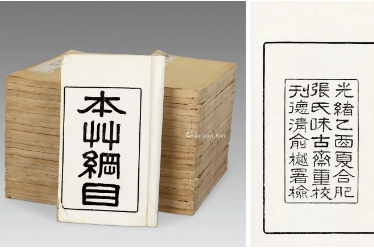 本艸綱目
光緒乙酉夏合肥
張氏味古齋重校
刊德清俞樾署檢